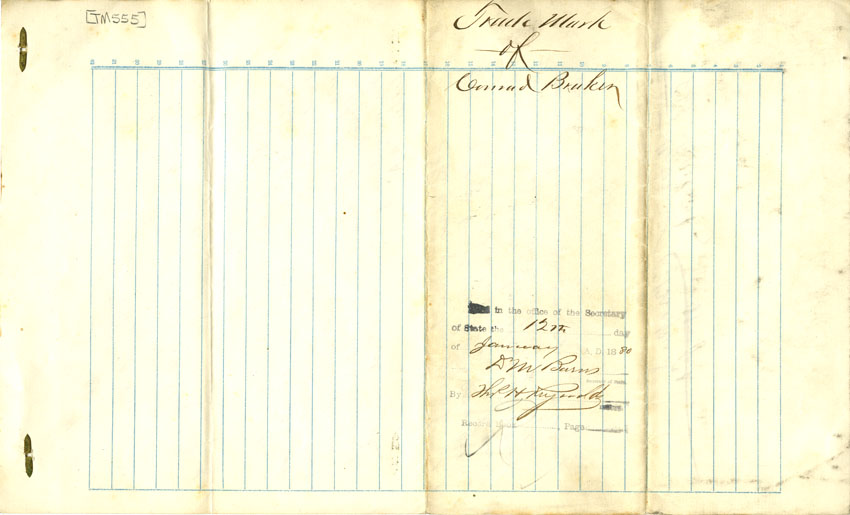 [TM555]
Trade Mark
of
Conrad Braker
in the office of the Secretary
of State the 12th day
of January A.D. 1880
D M Burns
By Thos H Reynolds
Record Book Page